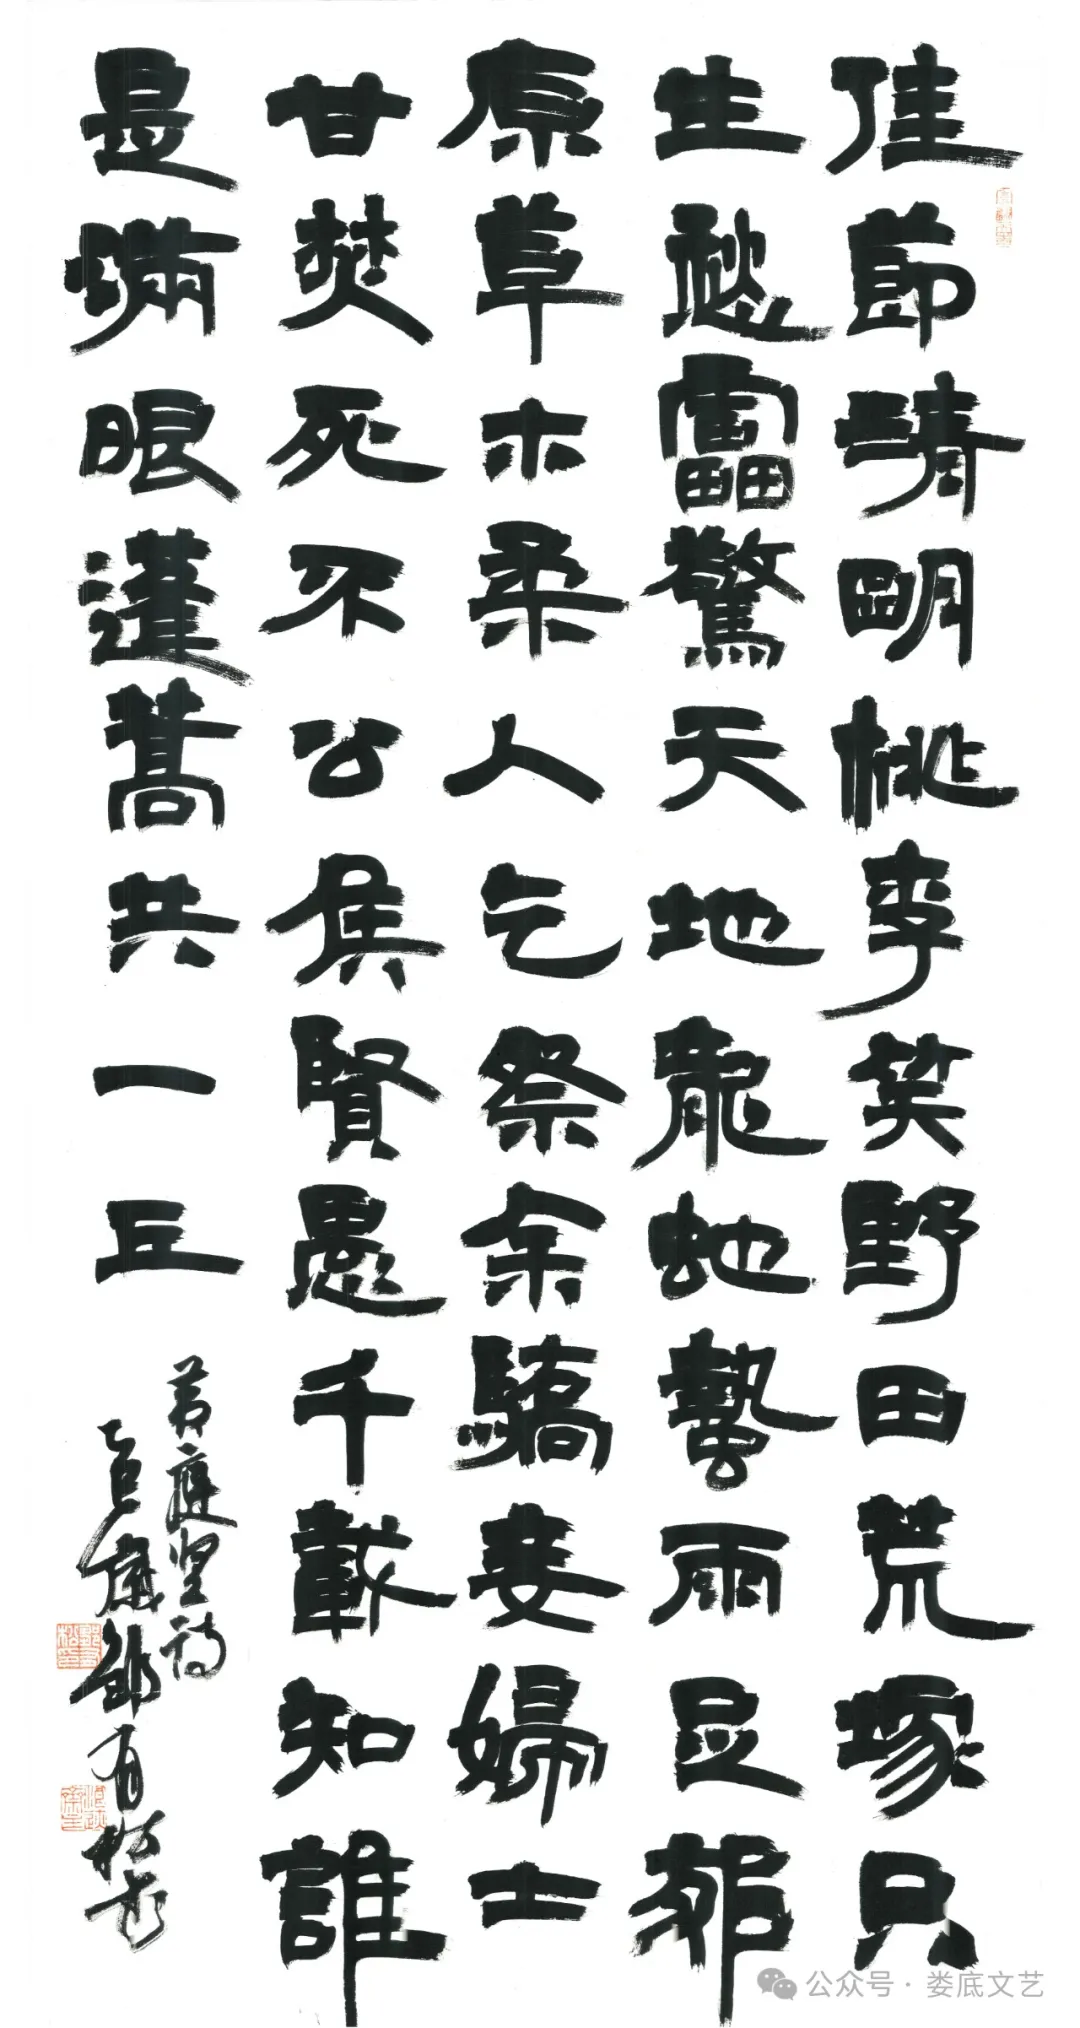 佳節清明桃李笑野田荒塚只
生愁雷驚天地龍虵蟄雨足郊
原草木柔人乞祭余驕妾婦士
甘焚死不公侯賢愚千載知誰
是滿眼蓬蒿共一丘
黄庭堅詩
乙巳 有松
公众号·娄底文艺